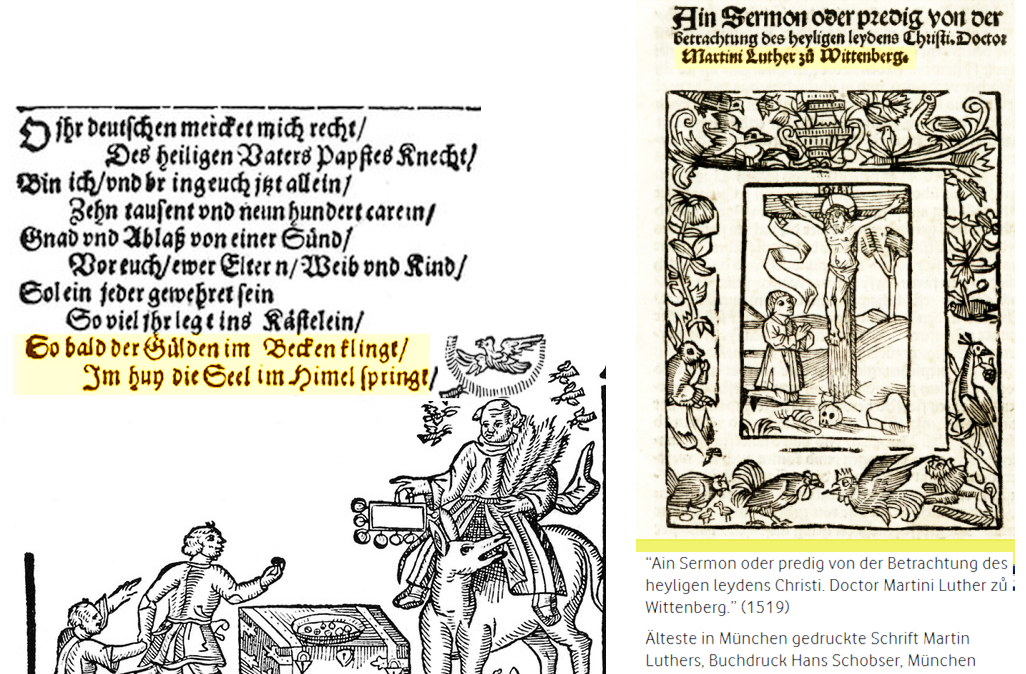 O jhr deutschen mercket mich recht/
Des heiligen Vaters Papstes Knecht/
Bin ich/vnd br ing euch jtzt allein/
Zehn tausent vnd neun hundert carein/
Gnad vnd Ablaß von einer Sünd/
Vor euch/ewer Elter n/Weib vnd Kind/
Sol ein jeder gewehret sein
So viel jhr leg t ins Kästelein/
So bald der Gülden im Becken klingt/
Im huy die Seel im Himel springt/
Ain Sermon oder predig von der
Betrachtung des heyligen leydens Christi. Doctor
Martini Luther zů Wittenberg.
“Ain Sermon oder predig von der Betrachtung des
heyligen leydens Christi. Doctor Martini Luther zů
Wittenberg.” (1519)
Älteste in München gedruckte Schrift Martin
Luthers, Buchdruck Hans Schobser, München